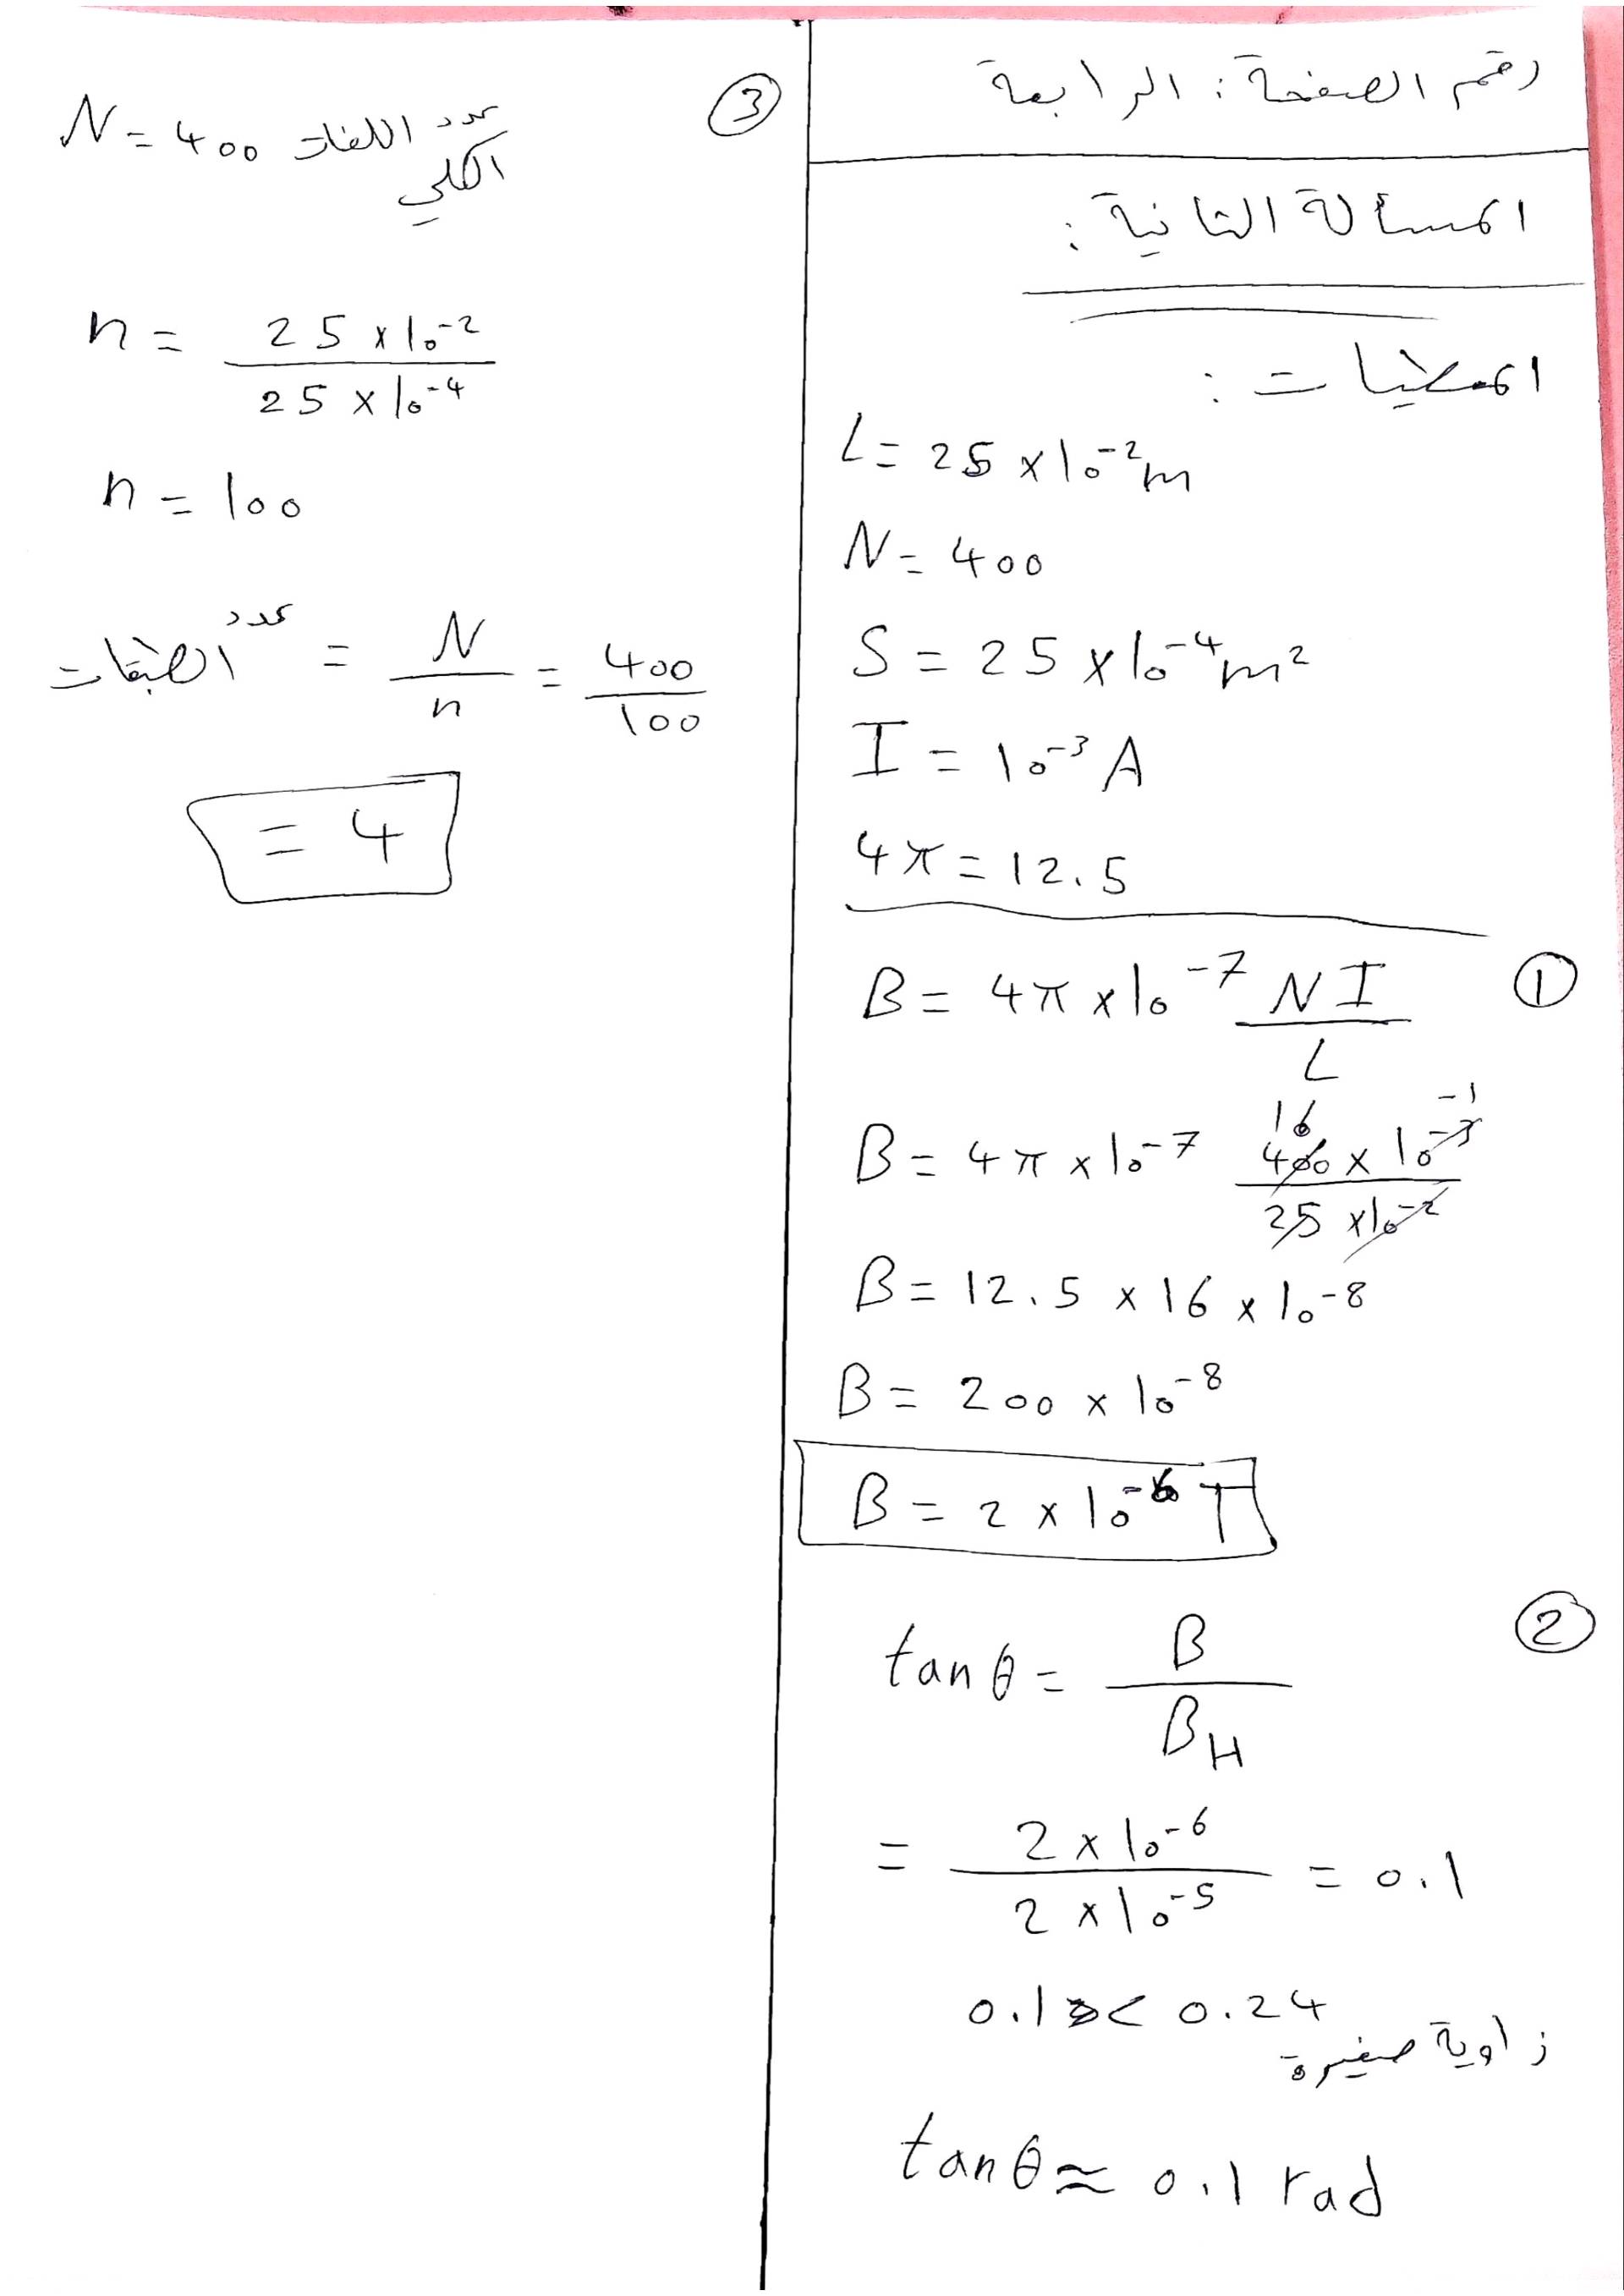 رقم الصفحة: الرابعة
المسألة الثانية:
المعطيات:
L = 25 × 10⁻² m
N = 400
S = 25 × 10⁻⁴ m²
I = 10⁻³ A
4π = 12.5
① B = 4π × 10⁻⁷ NI / L
B = 4π × 10⁻⁷ 400 × 10⁻³ / 25 × 10⁻² 16 -1
B = 12.5 × 16 × 10⁻⁸
B = 200 × 10⁻⁸
B = 2 × 10⁻⁶ T
② tanθ = B / B_H
= 2 × 10⁻⁶ / 2 × 10⁻⁵ = 0.1
0.1 < 0.24
زاوية صغيرة
tanθ ≈ 0.1 rad
③
N = 400 عدد اللفات
الكلي
n = 25 × 10⁻² / 25 × 10⁻⁴
n = 100
عدد الطبقات = N / n = 400 / 100
= 4